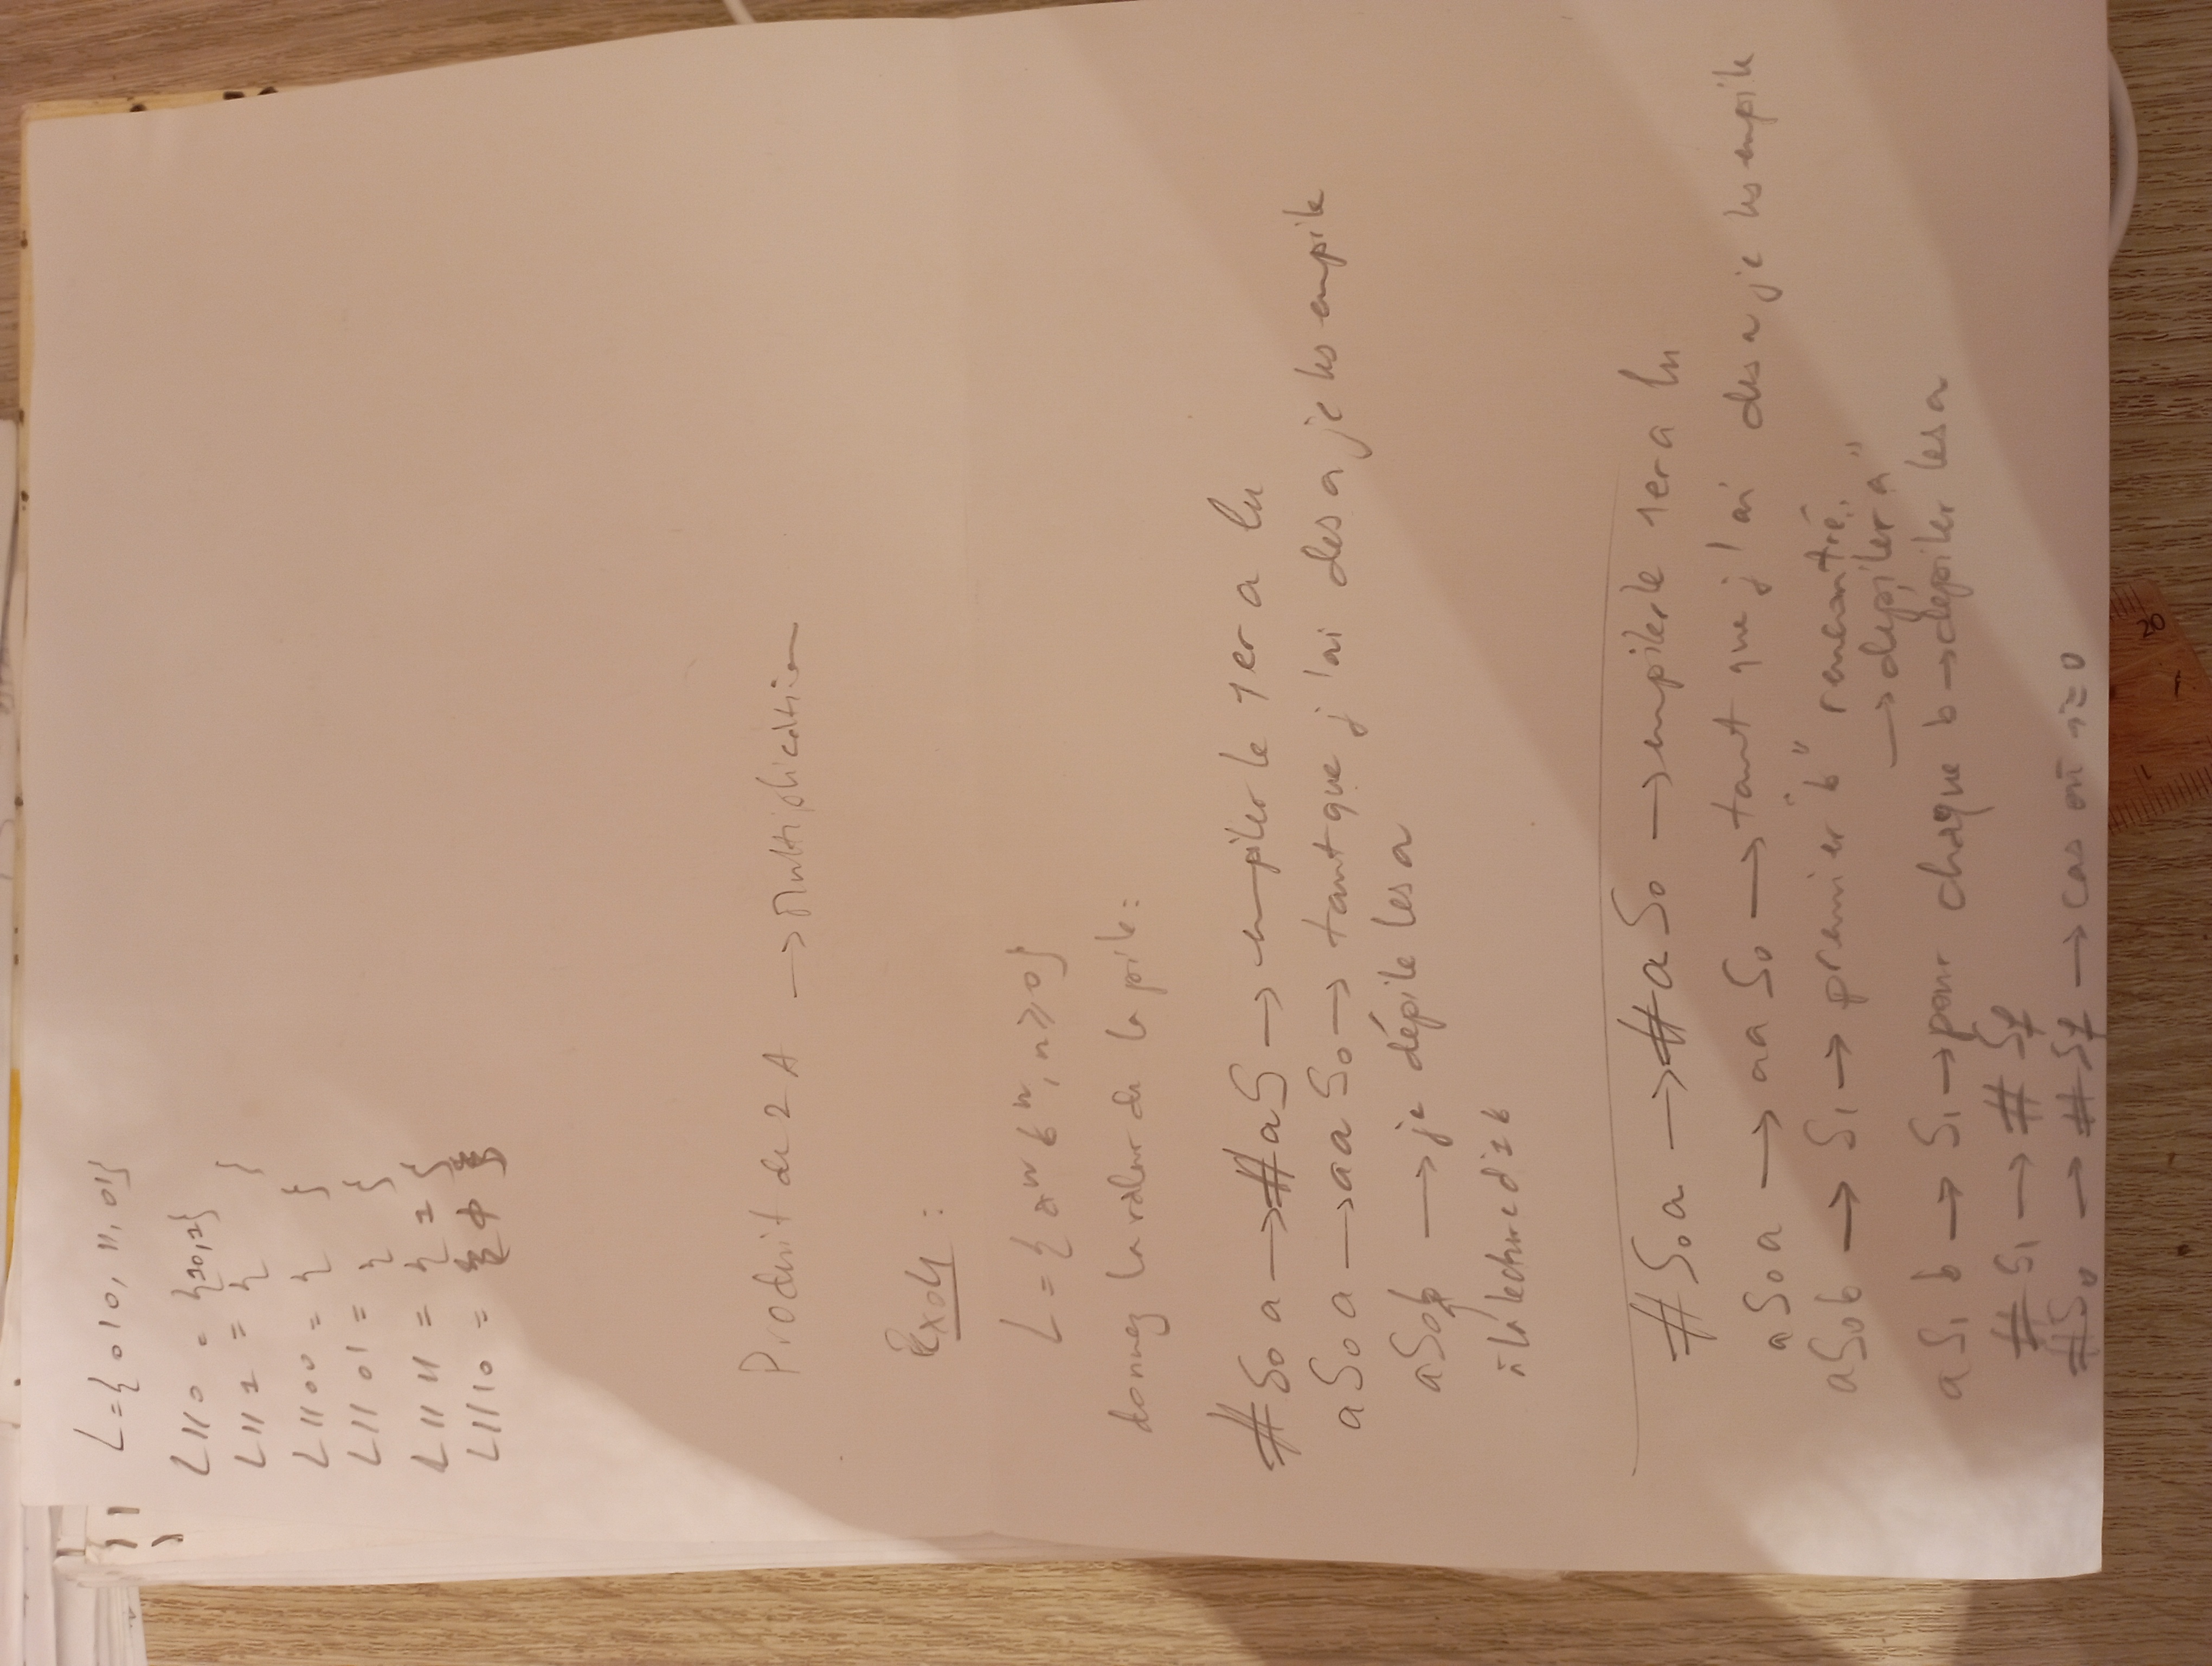 L={010, 11, 01}
L||0 = {10,1}
L||1 = { }
L||00 = { }
L||01 = { }
L||11 = { 1 }
L||10 = { ϕ }
Produit de 2 A → Multiplication
Exo4 :
L = { aⁿ bⁿ, n ≥ 0}
donnez la valeur de la pile :
# S₀ a → # a S → empiler le 1er a lu
a S₀ a → aa S₀ → tant que j'ai des a je les empile
a S₀ b → je dépile les a
à la lecture d'1 b
# S₀ a → # a S₀ → empiler le 1er a lu
a S₀ a → aa S₀ → tant que j'ai des a je les empile
a S₀ b → S₁ → premier "b" rencontré
→ depiler "a"
a S₁ b → S₁ → pour chaque b → dépiler les a
# S₁ → # Sf
# S₀ → # Sf → cas où n=0